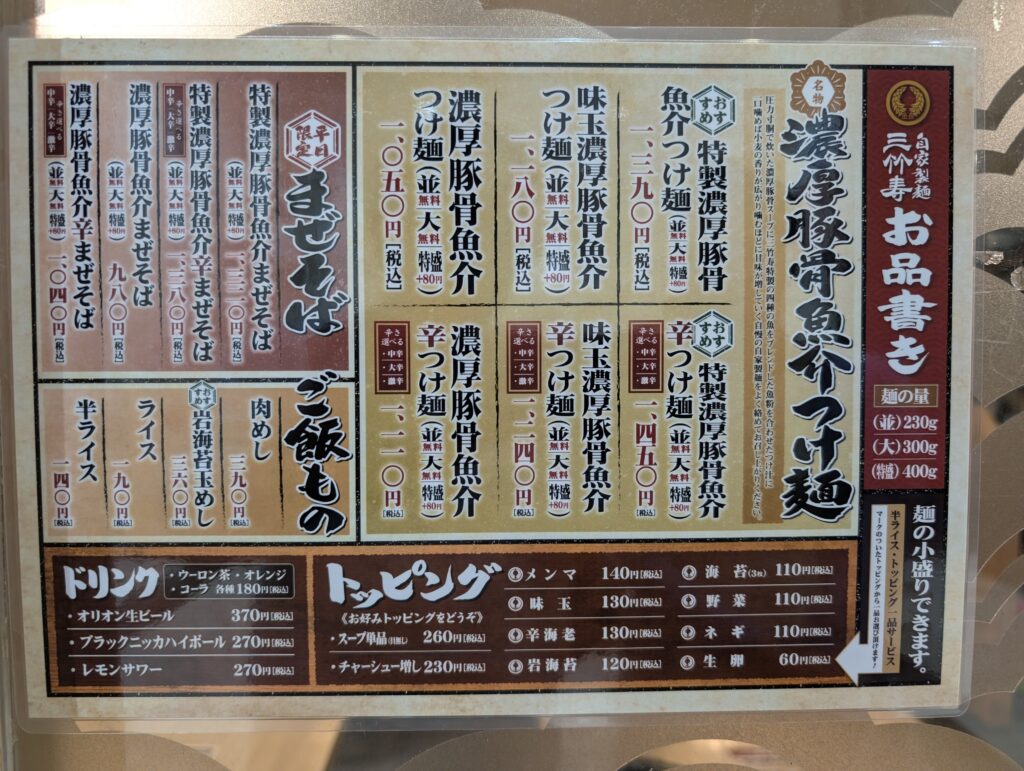 自家製麺
三竹寿
お品書き
麺の量
(並)230g
(大)300g
(特盛)400g
麺の小盛りできます。
半ライス・トッピング一品サービス
マークのついたトッピングから一品お選び頂けます!
名物
濃厚豚骨魚介つけ麺
圧力寸胴で炊いた濃厚豚骨スープに三竹寿特製の四種の魚をブレンドした魚粉を合わせたつけ汁に
一口噛めば小麦の香りが広がり噛むほどに甘味が増していく自慢の自家製麺をよく絡めてお召し上がりください。
おすすめ
特製濃厚豚骨
魚介つけ麺(並 無料 大 無料 特盛+80円)
一、三九〇円[税込]
味玉濃厚豚骨魚介
つけ麺(並 無料 大 無料 特盛+80円)
一、一八〇円[税込]
濃厚豚骨魚介
つけ麺(並 無料 大 無料 特盛+80円)
一、〇五〇円[税込]
おすすめ
特製濃厚豚骨魚介
辛つけ麺(並 無料 大 無料 特盛+80円)
一、四五〇円[税込]
味玉濃厚豚骨魚介
辛つけ麺(並 無料 大 無料 特盛+80円)
辛さ選べる・中辛・大辛・激辛
一、二四〇円[税込]
濃厚豚骨魚介
辛つけ麺(並 無料 大 無料 特盛+80円)
辛さ選べる・中辛・大辛・激辛
一、一一〇円[税込]
平日限定
まぜそば
特製濃厚豚骨魚介まぜそば
(並 無料 大 無料 特盛+80円)一、三二〇円[税込]
特製濃厚豚骨魚介辛まぜそば
辛さ選べる 中辛・大辛・激辛
(並 無料 大 無料 特盛+80円)一、三八〇円[税込]
濃厚豚骨魚介まぜそば
(並 無料 大 無料 特盛+80円)九八〇円[税込]
濃厚豚骨魚介辛まぜそば
辛さ選べる 中辛・大辛・激辛
(並 無料 大 無料 特盛+80円)一、〇四〇円[税込]
ご飯もの
肉めし
三九〇円[税込]
おすすめ
岩海苔玉めし
三六〇円[税込]
ライス
一九〇円[税込]
半ライス
一四〇円[税込]
トッピング
《お好みトッピングをどうぞ》
・スープ単品(具無し) 260円[税込]
・チャーシュー増し 230円[税込]
メンマ 140円[税込]
味玉 130円[税込]
辛海老 130円[税込]
岩海苔 120円[税込]
海苔(3枚) 110円[税込]
野菜 110円[税込]
ネギ 110円[税込]
生卵 60円[税込]
ドリンク
・ウーロン茶・オレンジ
・コーラ 各種180円[税込]
・オリオン生ビール 370円[税込]
・ブラックニッカハイボール 270円[税込]
・レモンサワー 270円[税込]